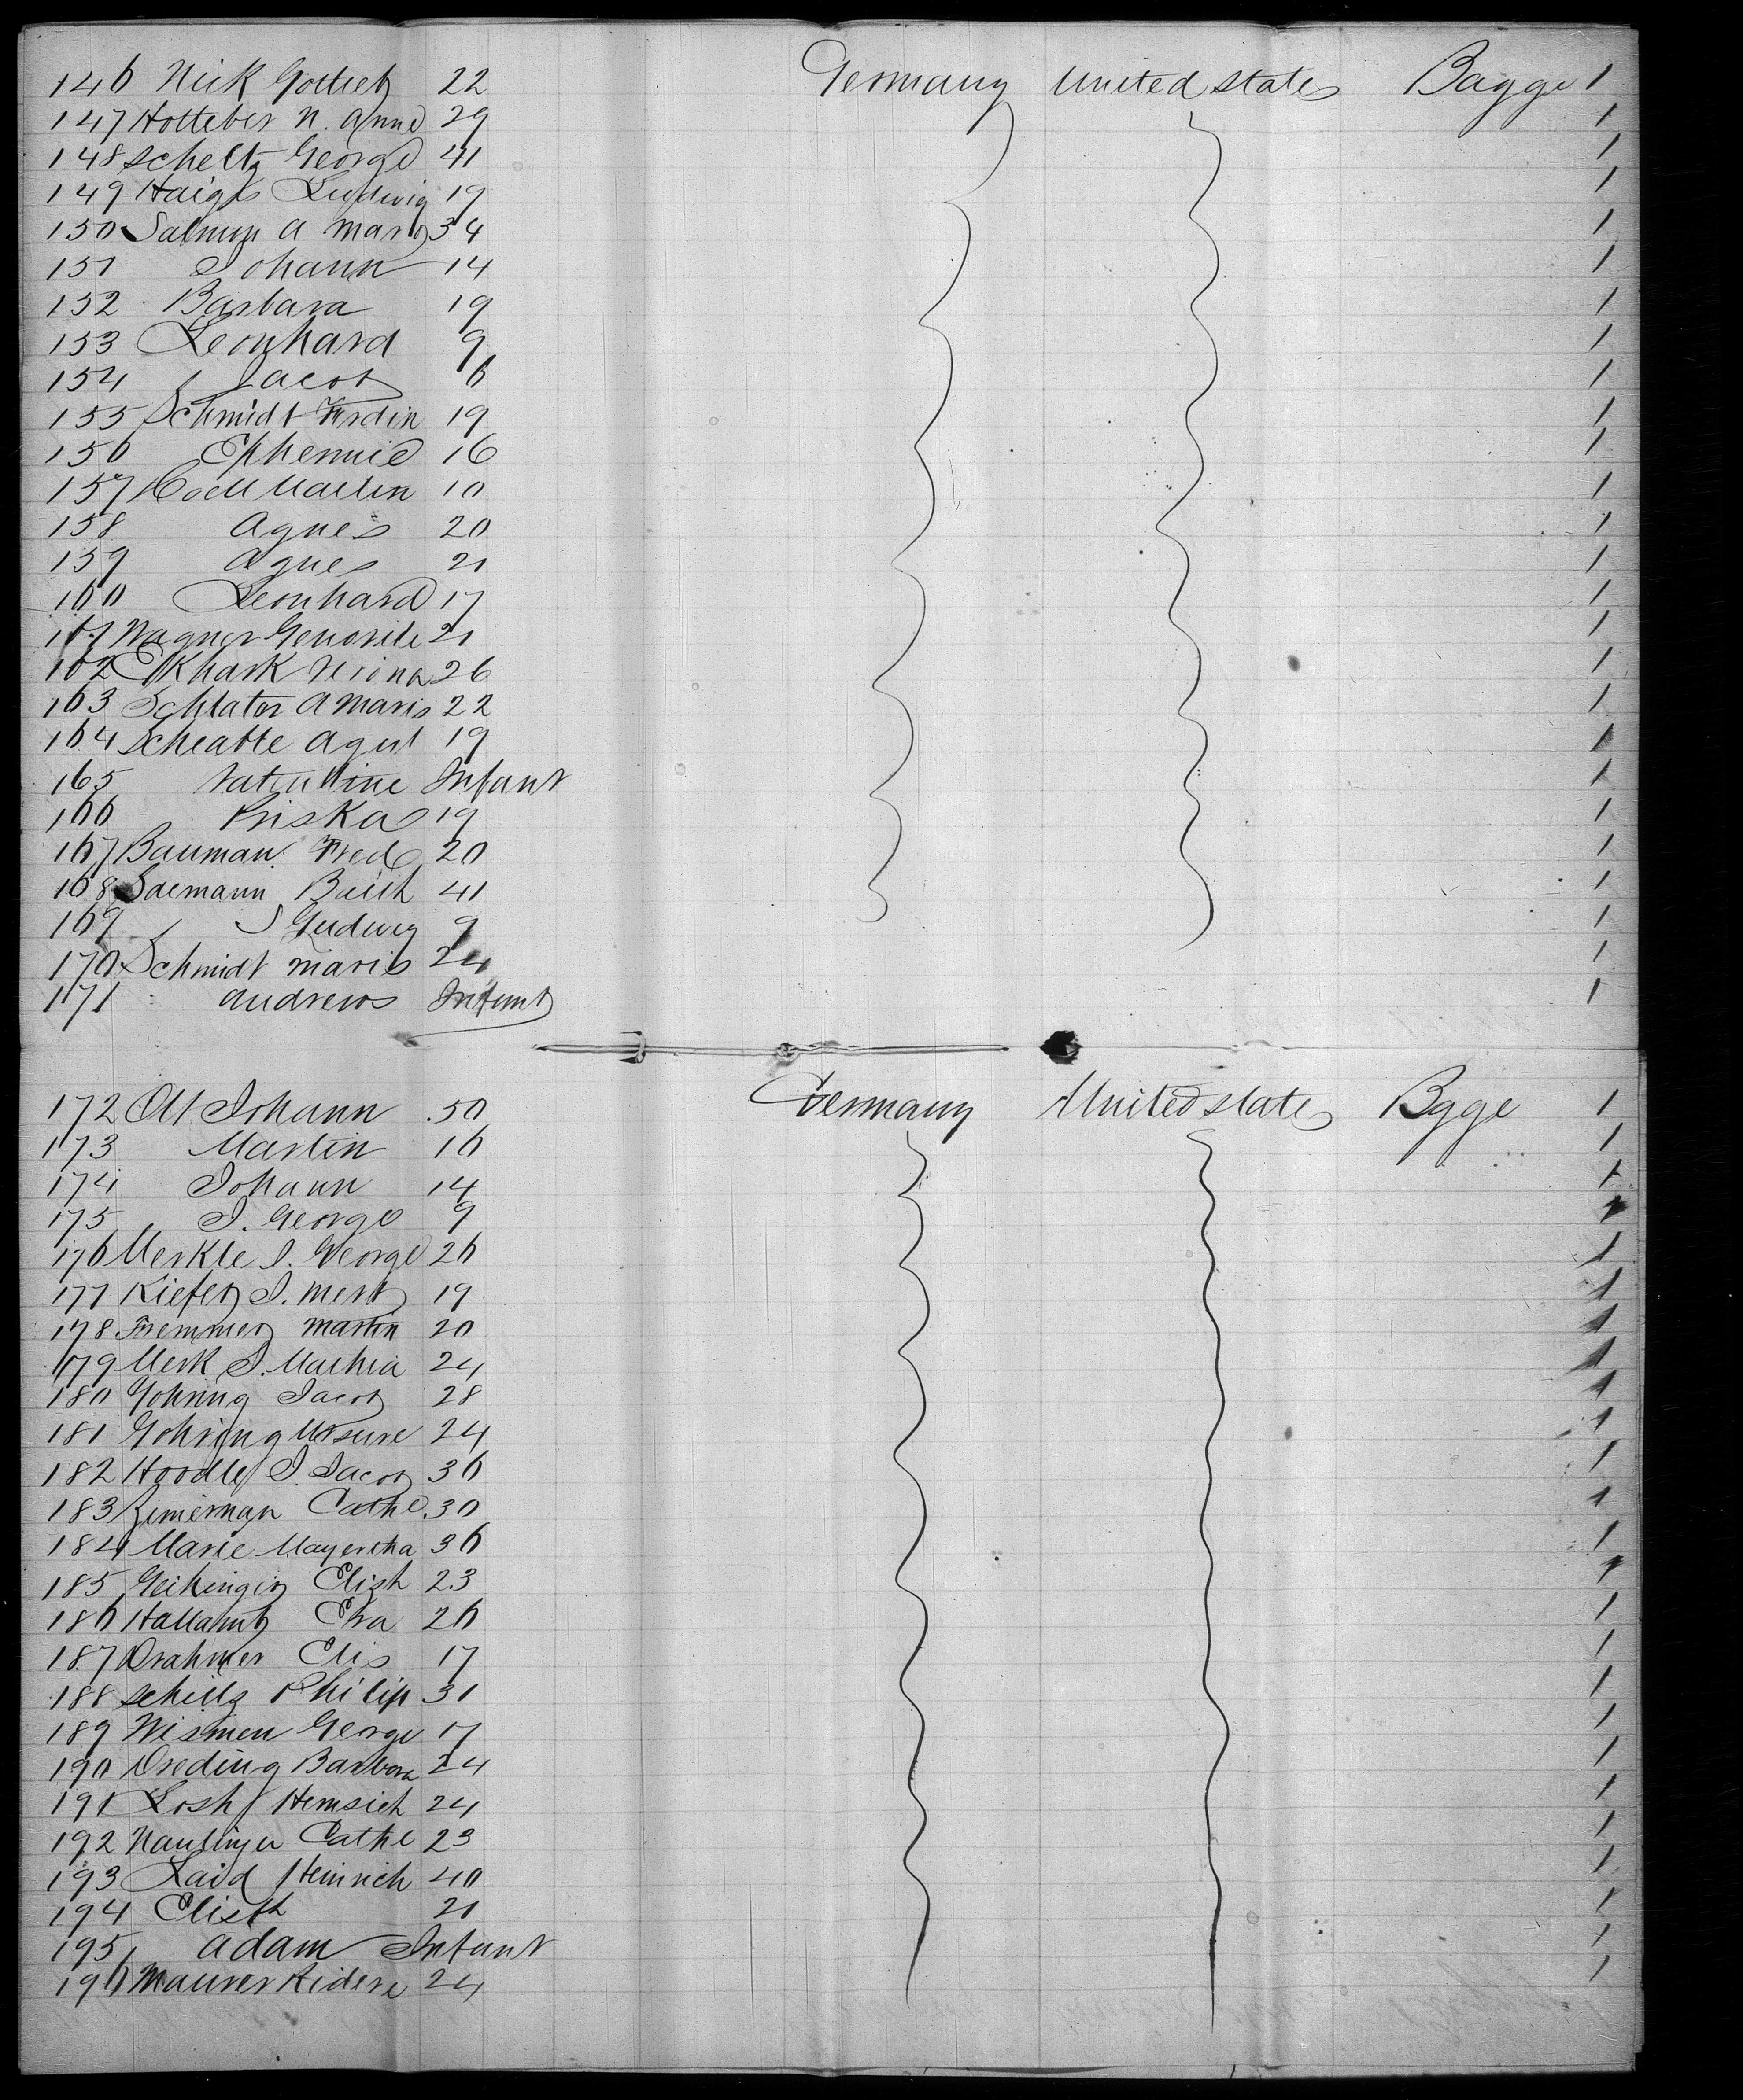 146 Nick Gottieb 22 Germany United States Bagge 1
147 Hotteber N. Anne 29 1
148 Scheltz George 41 1
149 Haigis Ludwig 19 1
150 A Mary 34 1
151 Johann 14 1
152 Barbara 19 1
153 Leonhard 9 1
154 Jacob 6 1
155 Schmidt Ferdin 19 1
156 Ephemie 16 1
157 Martin 10 1
158 Agnes 20 1
159 Agnes 21 1
160 Leonhard 17 1
161 Wagner 21 1
162 Ekhark 26 1
163 Schlater A Marie 22 1
164 Scheatte Agust 19 1
165 Infant 1
166 Priska 19 1
167 Bauman Fred 20 1
168 Saemann 41 1
169 Ludwig 9 1
170 Schmidt Marie 24 1
171 Andrews Infant 1
172 Ott Johann 50 Germany United States Bgge 1
173 Martin 16 1
174 Johann 14 1
175 J. George 9 1
176 Merkle J. George 26 1
177 Kiefer J. Mert 19 1
178 Fremmer Martin 20 1
179 Merk J. Mathia 24 1
180 Gohring Jacob 28 1
181 Gohring Ursure 24 1
182 Hoodle J. Jacob 36 1
183 Zimerman Cathe 30 1
184 Marie Mayertha 36 1
185 Geikinger Elish 23 1
186 Hallamb Eva 26 1
187 Drahmer Elis 17 1
188 Schillz Philip 31 1
189 Wismen George 17 1
190 Dreding Barbora 24 1
191 Losh Hemsich 24 1
192 Naulinger Cathe 23 1
193 Laid Heinrich 40 1
194 Elisth 21 1
195 Adam Infant 1
196 Maurer Ridere 24 1